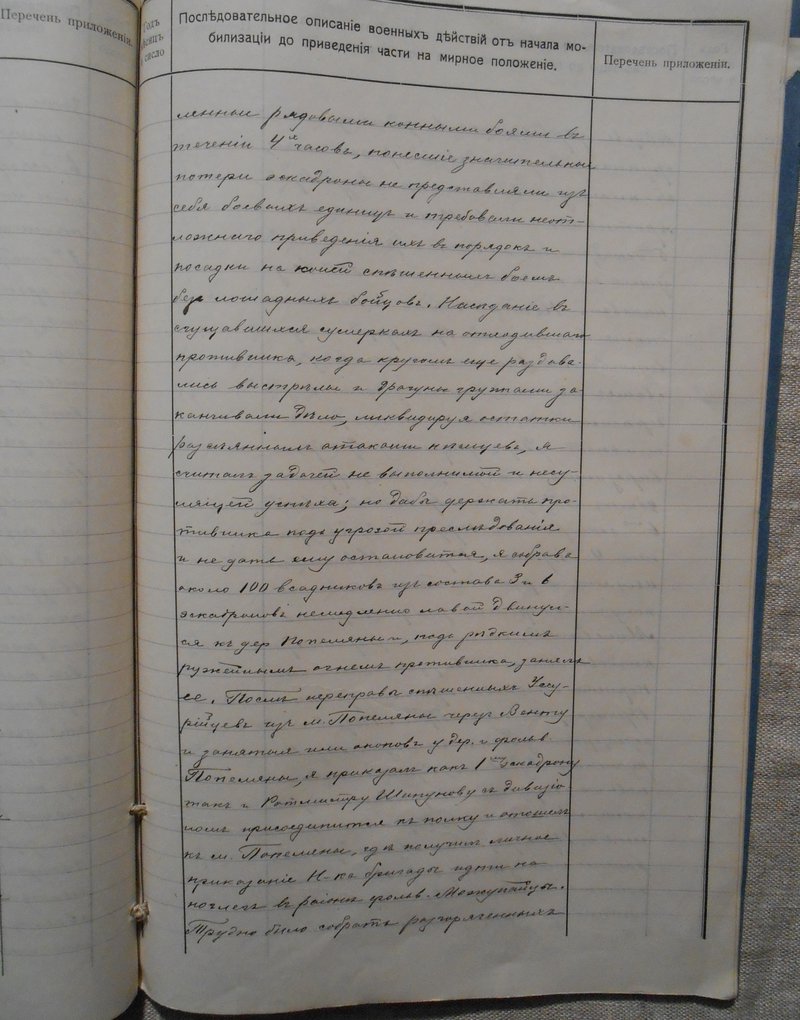 Перечень приложеній.
Годъ
мѣсяцъ
и число
Послѣдовательное описаніе военныхъ дѣйствій отъ начала мо-
билизаціи до приведенія части на мирное положеніе.
Перечень приложеній.
рядовыми конными боями въ
теченіи 4х часовъ, понесшіе значительныя
потери эскадроны не представляли изъ
себя боевыхъ единицъ и требовали неот-
ложнаго приведенія ихъ въ порядокъ и
посадки на коней спѣшенныхъ боемъ
без лошадныхъ бойцовъ. Насѣданіе въ
сгущавшихся сумеркахъ на отходившаго
противника, когда кругомъ еще раздава-
лись выстрѣлы и драгуны группами за-
канчивали дѣло, ликвидируя остатки
разсѣянныхъ атаками нѣмцевъ, я
считалъ задачей не выполнимой и несу-
лящей успѣха; но дабы держать про-
тивника подъ угрозой преслѣдованія
и не дать ему остановится, я собравъ
около 100 всадниковъ изъ состава 3 и 6
эскадроновъ немедленно лавой двинул-
ся къ дер Попеляны и, подъ рѣдкимъ
ружейнымъ огнемъ противника, занялъ
ее. Послѣ переправы спѣшенныхъ Уссу-
рійцевъ изъ м. Попеляны черезъ Венту
и занятія ими окоповъ у дер. и фольв.
Попеляны, я приказалъ какъ 1му эскадрону
такъ и Ротмистру Шипунову съ дивизіо
номъ присоединится къ полку и отошелъ
къ м. Попеляны, гдѣ получилъ личное
приказаніе Н-ка бригады идти на
ночлегъ въ раіонъ фольв.
Трудно было собрать разгоряченныхъ